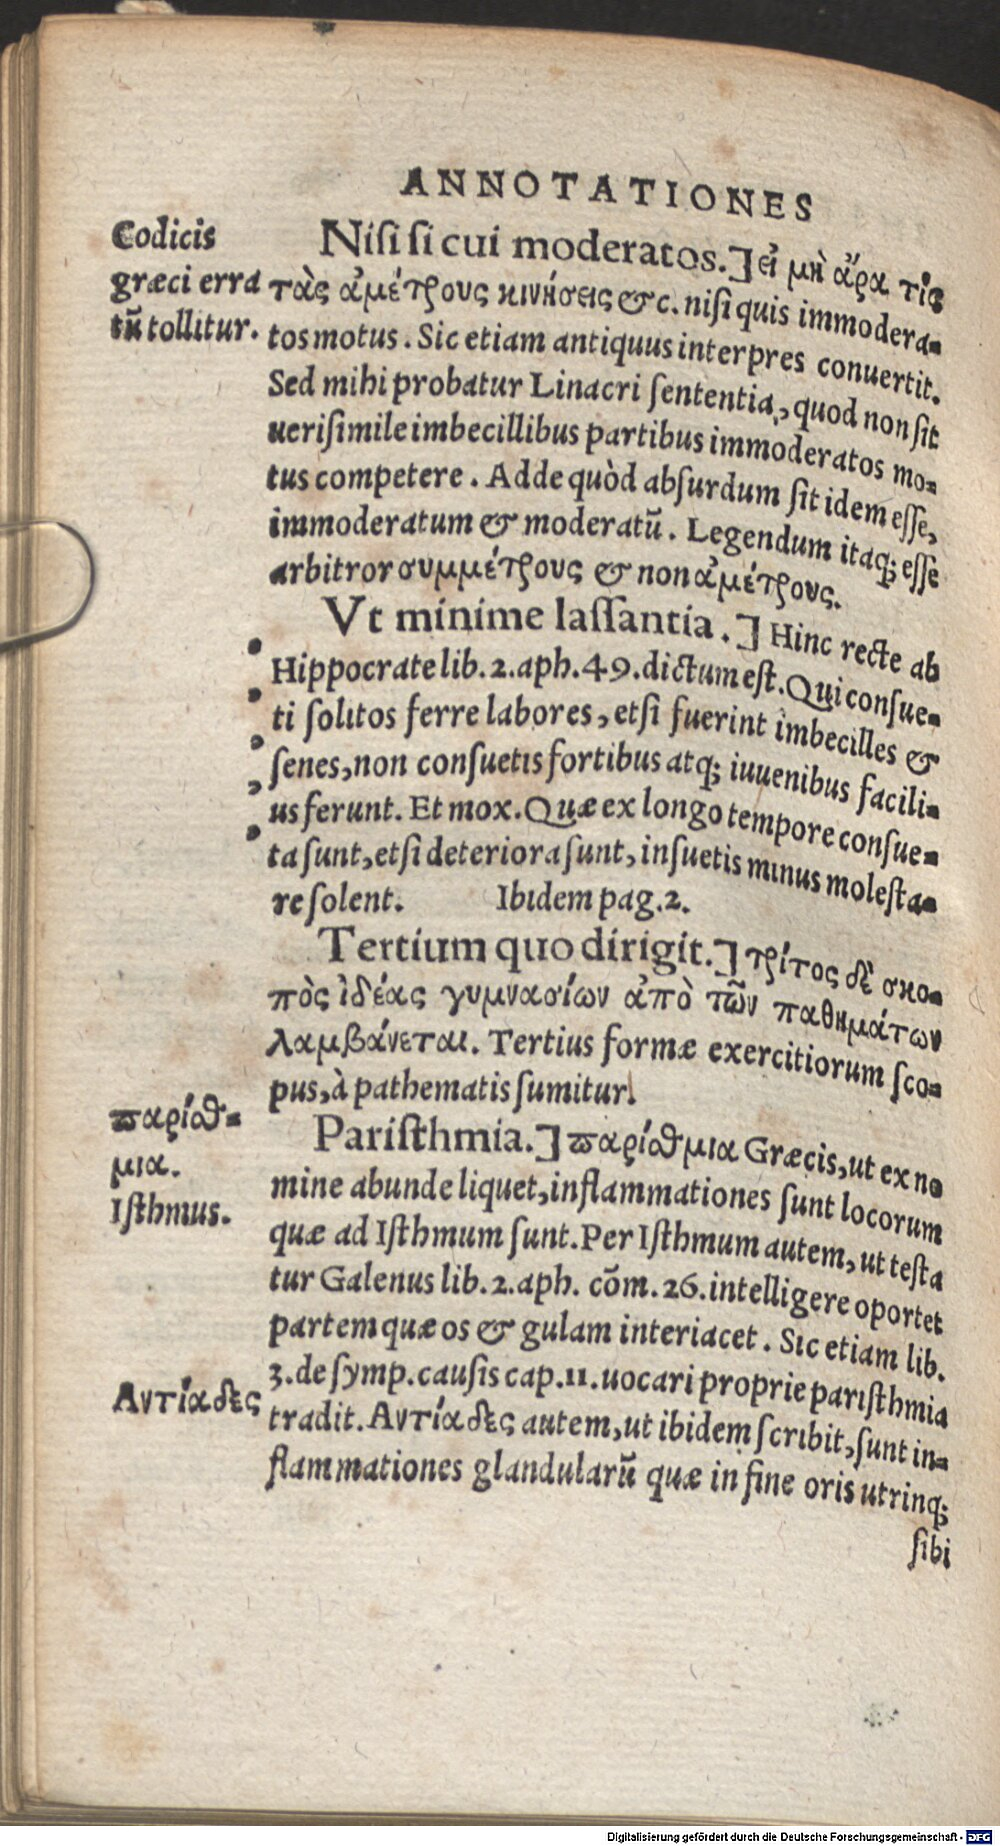 ANNOTATIONES
Codicis
græci erra
tũ tollitur.
Nisi si cui moderatos.] εἰ μὴ ἄρα τις
τὰς ἀμέτρους κινήσεις & c. nisi quis immodera-
tos motus. Sic etiam antiquus interpres conuertit.
Sed mihi probatur Linacri sententia, quod non sit
uerisimile imbecillibus partibus immoderatos mo-
tus competere. Adde quòd absurdum sit idem esse,
immoderatum & moderatũ. Legendum itaq; esse
arbitror συμμέτρους & non ἀμέτρους.
Vt minime lassantia.] Hinc recte ab
Hippocrate lib. 2. aph. 49. dictum est. Qui consue-
ti solitos ferre labores, etsi fuerint imbecilles &
senes, non consuetis fortibus atq; iuuenibus facili-
us ferunt. Et mox. Quæ ex longo tempore consue-
ta sunt, etsi deteriora sunt, insuetis minus molesta-
re solent. Ibidem pag. 2.
Tertium quo dirigit.] τρίτος δὲ σκο-
πὸς ἰδέας γυμνασίων ἀπὸ τῶν παθημάτων
λαμβάνεται. Tertius formæ exercitiorum sco-
pus, à pathematis sumitur.
παρίσθ-
μια.
Isthmus.
Paristhmia.] παρίσθμια Græcis, ut ex no
mine abunde liquet, inflammationes sunt locorum
quæ ad Isthmum sunt. Per Isthmum autem, ut testa
tur Galenus lib. 2. aph. cõm. 26. intelligere oportet
partem quæ os & gulam interiacet. Sic etiam lib.
3. de symp. causis cap. 11. uocari proprie paristhmia
Αντίαδες
tradit. Αντίαδες autem, ut ibidem scribit, sunt in-
flammationes glandularũ quæ in fine oris utrinq;
sibi
Digitalisierung gefördert durch die Deutsche Forschungsgemeinschaft - DFG